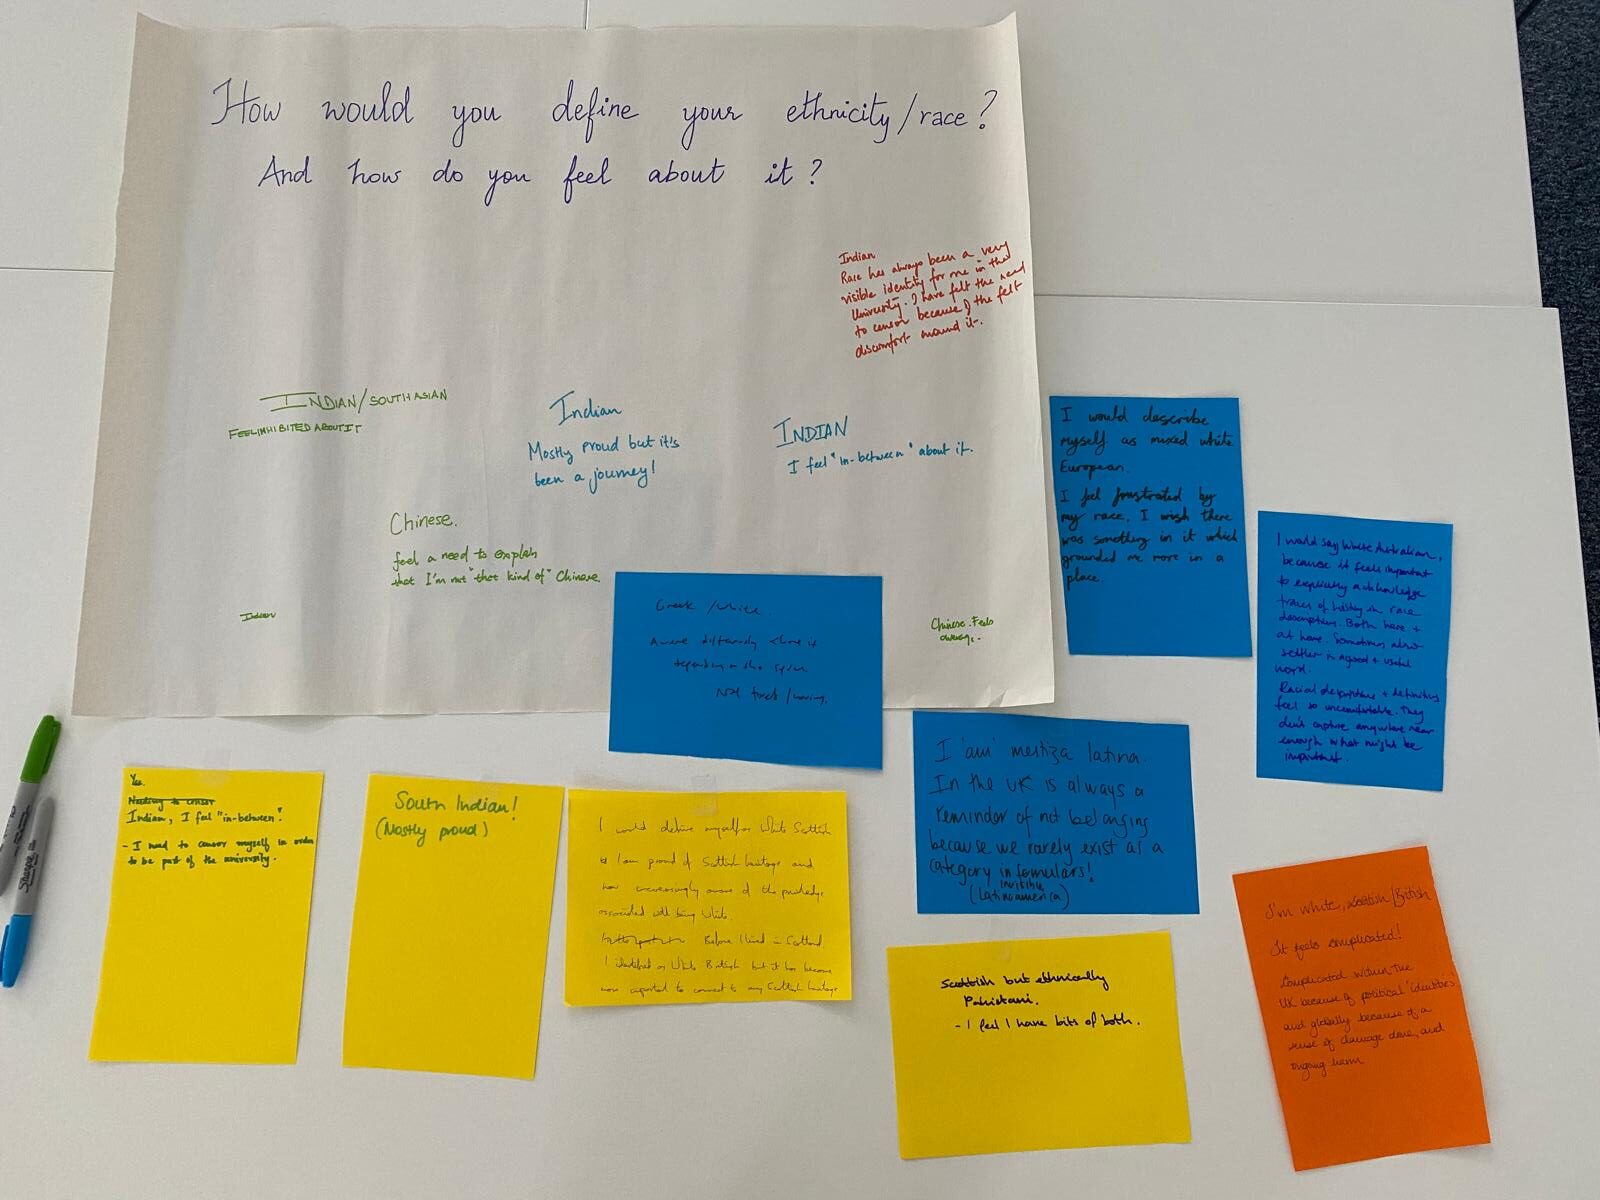 How would you define your ethnicity/race?
And how do you feel about it?
Indian
Race has always been a very
visible identity for me in the
University. I have felt the need
to censor because of the felt
discomfort around it.
INDIAN/SOUTH ASIAN
FEEL INHIBITED ABOUT IT
Indian
Mostly proud but it's
been a journey!
INDIAN
I feel "in-between" about it.
Chinese.
feel a need to explain
that I'm not "that kind of" Chinese.
Indian
Chinese. Feels
Greek / white.
depending on the
I would describe
myself as mixed white
European.
I feel frustrated by
my race. I wish there
was something in it which
grounded me more in a
place.
I would say White Australian,
because it feels important
to explicitly acknowledge
traces of history in race
descriptions. Both here +
at home. Sometimes also
settler is a good + useful
word.
Racial descriptions + definitions
feel so uncomfortable. They
don't capture anywhere near
enough what might be
important.
I 'am' mestiza latina.
In the UK is always a
reminder of not belonging
because we rarely exist as a
category in formulars!
invisible
(Latinoamerica)
Yes.
Needing to censor
Indian, I feel "in-between".
- I need to censor myself in order
to be part of the university.
South Indian!
(Mostly proud)
I would define myself as White Scottish
I am proud of Scottish heritage and
now increasingly aware of the privilege
associated with being White.
Before I lived in Scotland
I identified as White British but it has become
more important to connect to my Scottish heritage
Scottish but ethnically
Pakistani.
- I feel I have bits of both.
I'm white, Scottish/British
It feels complicated!
Complicated within the
UK because of political identities
and globally because of a
sense of damage done, and
ongoing harm
Sharpie